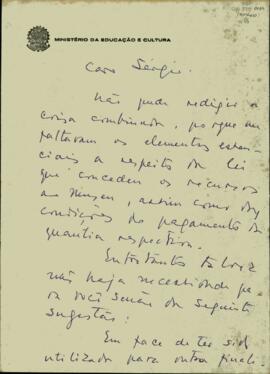 MINISTÉRIO DA EDUCAÇÃO E CULTURA
Caro Sérgio:
Não pude redigir a
coisa combinada, porque me
faltavam os elementos essen-
ciais a respeito da lei
que concedeu os recursos
ao Museu, assim como das
condições do pagamento da
quantia respectiva.
Entretanto talvez
não haja necessidade pa-
ra você senão da seguinte
sugestão:
Em face de ter sido
utilizado para outra finali-